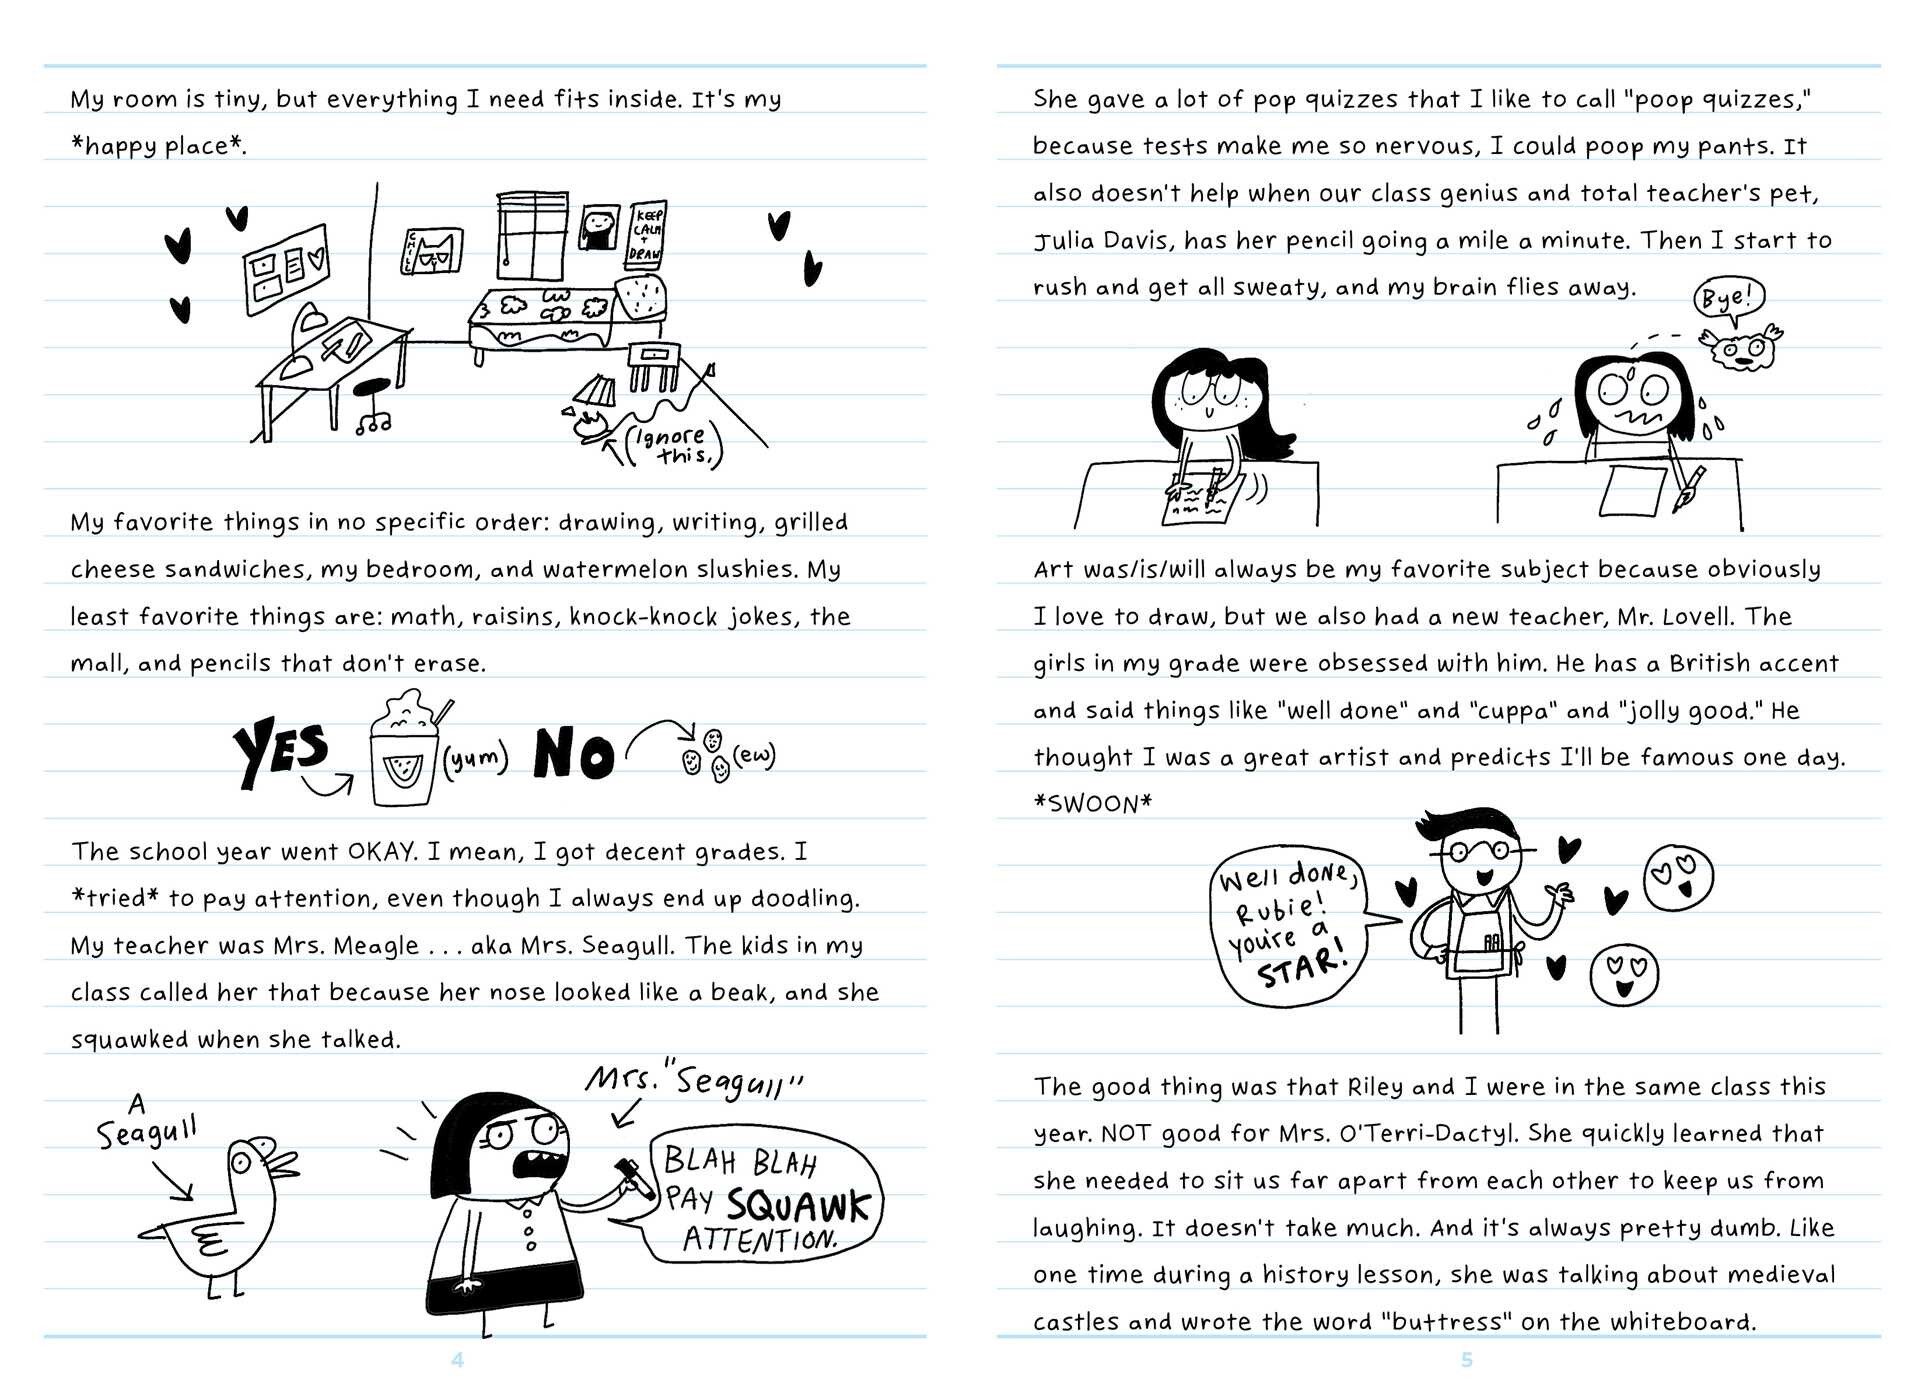 My room is tiny, but everything I need fits inside. It's my
*happy place*.
CHILL
KEEP
CALM
+
DRAW
(Ignore
this.)
My favorite things in no specific order: drawing, writing, grilled
cheese sandwiches, my bedroom, and watermelon slushies. My
least favorite things are: math, raisins, knock-knock jokes, the
mall, and pencils that don't erase.
YES (yum) NO (ew)
The school year went OKAY. I mean, I got decent grades. I
*tried* to pay attention, even though I always end up doodling.
My teacher was Mrs. Meagle . . . aka Mrs. Seagull. The kids in my
class called her that because her nose looked like a beak, and she
squawked when she talked.
A
Seagull
Mrs. "Seagull"
BLAH BLAH
PAY SQUAWK
ATTENTION.
4
She gave a lot of pop quizzes that I like to call "poop quizzes,"
because tests make me so nervous, I could poop my pants. It
also doesn't help when our class genius and total teacher's pet,
Julia Davis, has her pencil going a mile a minute. Then I start to
rush and get all sweaty, and my brain flies away.
Bye!
Art was/is/will always be my favorite subject because obviously
I love to draw, but we also had a new teacher, Mr. Lovell. The
girls in my grade were obsessed with him. He has a British accent
and said things like "well done" and "cuppa" and "jolly good." He
thought I was a great artist and predicts I'll be famous one day.
*SWOON*
Well done,
Rubie!
you're a
STAR!
The good thing was that Riley and I were in the same class this
year. NOT good for Mrs. O'Terri-Dactyl. She quickly learned that
she needed to sit us far apart from each other to keep us from
laughing. It doesn't take much. And it's always pretty dumb. Like
one time during a history lesson, she was talking about medieval
castles and wrote the word "buttress" on the whiteboard.
5